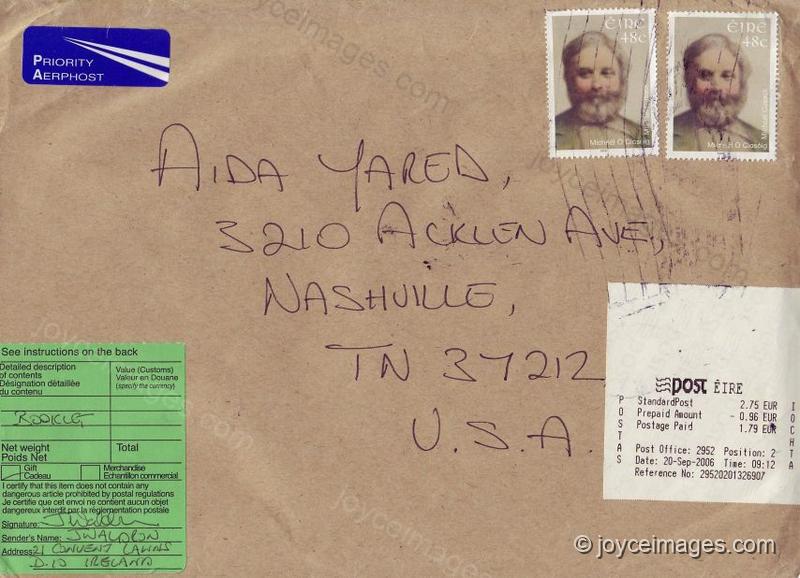 PRIORITY
AERPHOST
ÉIRE
48c
Mícheál Ó Cléirigh
ÉIRE
48c
AIDA YARED,
3210 ACKLEN AVE,
NASHVILLE,
TN 37212
U.S.A.
post ÉIRE
StandardPost 2.75 EUR
Prepaid Amount - 0.96 EUR
Postage Paid 1.79 EUR
Post Office: 2952 Position: 2
Date: 20-Sep-2006 Time: 09:12
Reference No: 29520201326907
POSTAS
ÍOCHTA
See instructions on the back
Detailed description
of contents
Désignation détaillée
du contenu
Value (Customs)
Valeur en Douane
(specify the currency)
BOOKLET
Net weight
Poids Net
Total
Gift
Cadeau
Merchandise
Echantillon commercial
I certify that this item does not contain any
dangerous article prohibited by postal regulations
Je certifie que cet envoi ne contient aucun objet
dangereux interdit par la réglementation postale
Signature: J Waldron
Sender's Name: J WALDRON
Address: 21 CONVENT LAWNS
D.10 IRELAND
joyceimages.com
© joyceimages.com